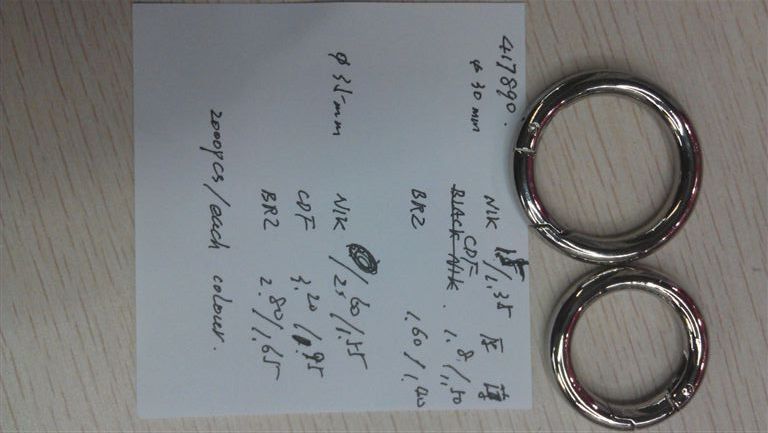 417890.
φ 30mm NIK /1.35 厚 薄
CDF 1.8/1.50
BRZ 1.60/1.40
φ 35mm NIK /1.55
CDF 3.20/1.95
BRZ 2.80/1.65
2000pcs/each colour.